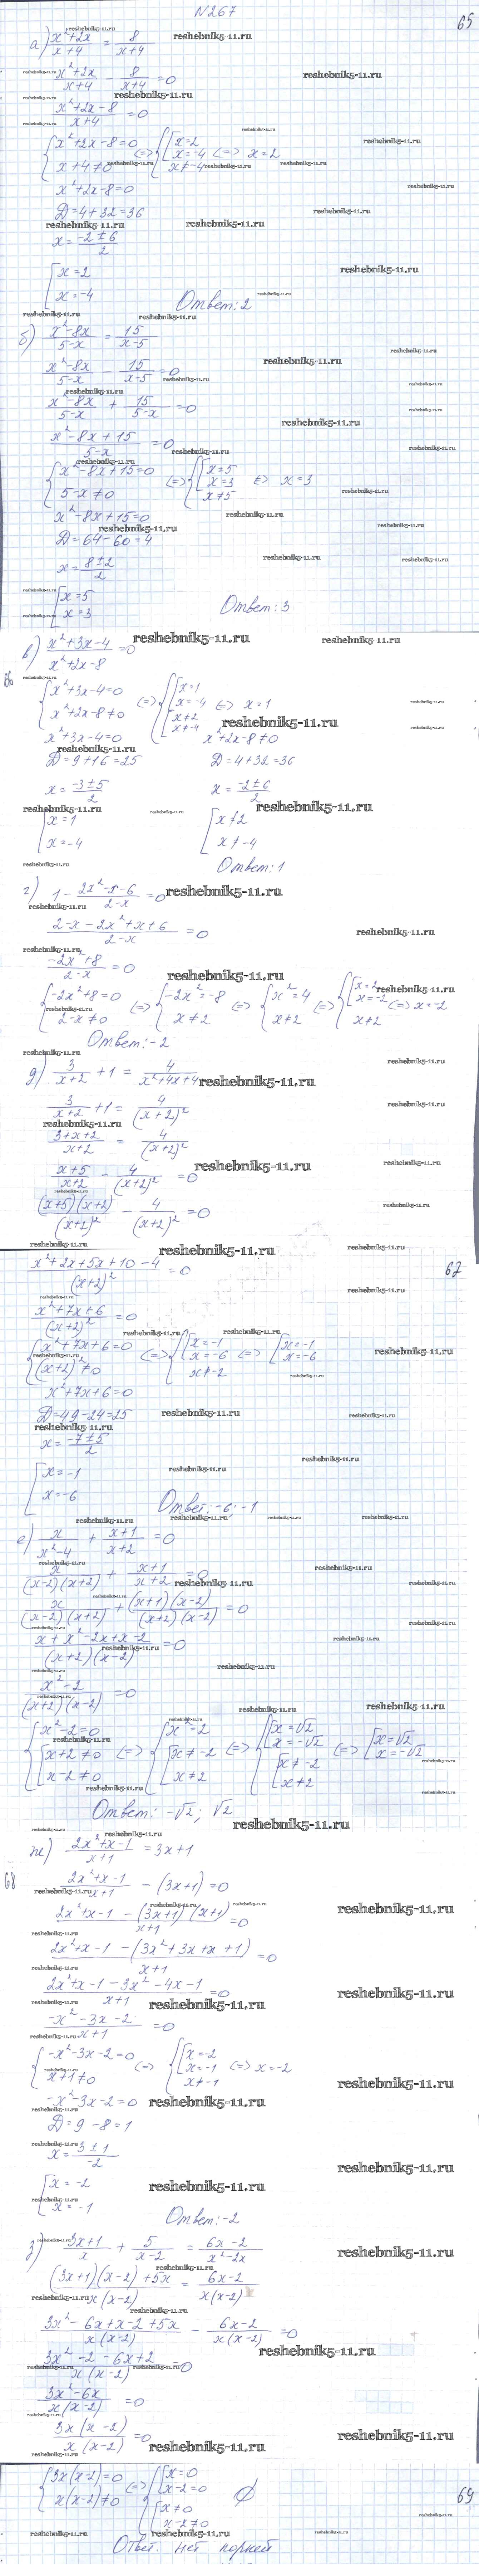 №267
65
а) x²+2x/x+4 = 8/x+4
x²+2x/x+4 - 8/x+4 = 0
x²+2x-8/x+4 = 0
{x²+2x-8=0 {[x=2
(=>) x=-4 (=>) x=2
x+4≠0 x≠-4
x²+2x-8=0
D=4+32=36
x= -2±6/2
[x=2
x=-4
Ответ: 2
б) x²-8x/5-x = 15/x-5
x²-8x/5-x - 15/x-5 = 0
x²-8x/5-x + 15/5-x = 0
x²-8x+15/5-x = 0
{x²-8x+15=0 (=>) {[x=5
x=3 (=>) x=3
5-x≠0 x≠5
x²-8x+15=0
D=64-60=4
x= 8±2/2
[x=5
x=3
Ответ: 3
в) x²+3x-4/x²+2x-8 = 0
66
{x²+3x-4=0 (=>) {[x=1
x=-4 (=>) x=1
x²+2x-8≠0 [x≠2
x≠-4
x²+3x-4=0 x²+2x-8≠0
D=9+16=25 D=4+32=36
x= -3±5/2 x= -2±6/2
[x=1 [x≠2
x=-4 x≠-4
Ответ: 1
г) 1 - 2x²-x-6/2-x = 0
2-x-2x²+x+6/2-x = 0
-2x²+8/2-x = 0
{-2x²+8=0 (=>) {-2x²=-8 (=>) {x²=4 (=>) {[x=2
x=-2 (=>) x=-2
2-x≠0 x≠2 x≠2 x≠2
Ответ: -2
д) 3/x+2 + 1 = 4/x²+4x+4
3/x+2 + 1 = 4/(x+2)²
3+x+2/x+2 = 4/(x+2)²
x+5/x+2 - 4/(x+2)² = 0
(x+5)(x+2)/(x+2)² - 4/(x+2)² = 0
x²+2x+5x+10-4/(x+2)² = 0
67
x²+7x+6/(x+2)² = 0
{x²+7x+6=0 (=>) {[x=-1 (=>) [x=-1
x=-6 x=-6
(x+2)²≠0 x≠-2
x²+7x+6=0
D=49-24=25
x= -7±5/2
[x=-1
x=-6
Ответ: -6; -1
е) x/x²-4 + x+1/x+2 = 0
x/(x-2)(x+2) + x+1/x+2 = 0
x/(x-2)(x+2) + (x+1)(x-2)/(x+2)(x-2) = 0
x+x²-2x+x-2/(x+2)(x-2) = 0
x²-2/(x+2)(x-2) = 0
{x²-2=0 {x²=2 {[x=√2
x=-√2 [x=√2
[x+2≠0 (=>) [x≠-2 (=>) [x≠-2 (=>) x=-√2
x-2≠0 x≠2 x≠2
Ответ: -√2; √2
ж) 2x²+x-1/x+1 = 3x+1
68
2x²+x-1/x+1 - (3x+1) = 0
2x²+x-1-(3x+1)(x+1)/x+1 = 0
2x²+x-1-(3x²+3x+x+1)/x+1 = 0
2x²+x-1-3x²-4x-1/x+1 = 0
-x²-3x-2/x+1 = 0
{-x²-3x-2=0 (=>) {[x=-2
x=-1 (=>) x=-2
x+1≠0 x≠-1
-x²-3x-2=0
D=9-8=1
x= 3±1/-2
[x=-2
x=-1
Ответ: -2
з) 3x+1/x + 5/x-2 = 6x-2/x²-2x
(3x+1)(x-2)+5x/x(x-2) = 6x-2/x(x-2)
3x²-6x+x-2+5x/x(x-2) - 6x-2/x(x-2) = 0
3x²-2-6x+2/x(x-2) = 0
3x²-6x/x(x-2) = 0
3x(x-2)/x(x-2) = 0
{3x(x-2)=0 (=>) {[x=0
x-2=0 ∅
x(x-2)≠0 [x≠0
x-2≠0
69
Ответ: нет корней
reshebnik5-11.ru